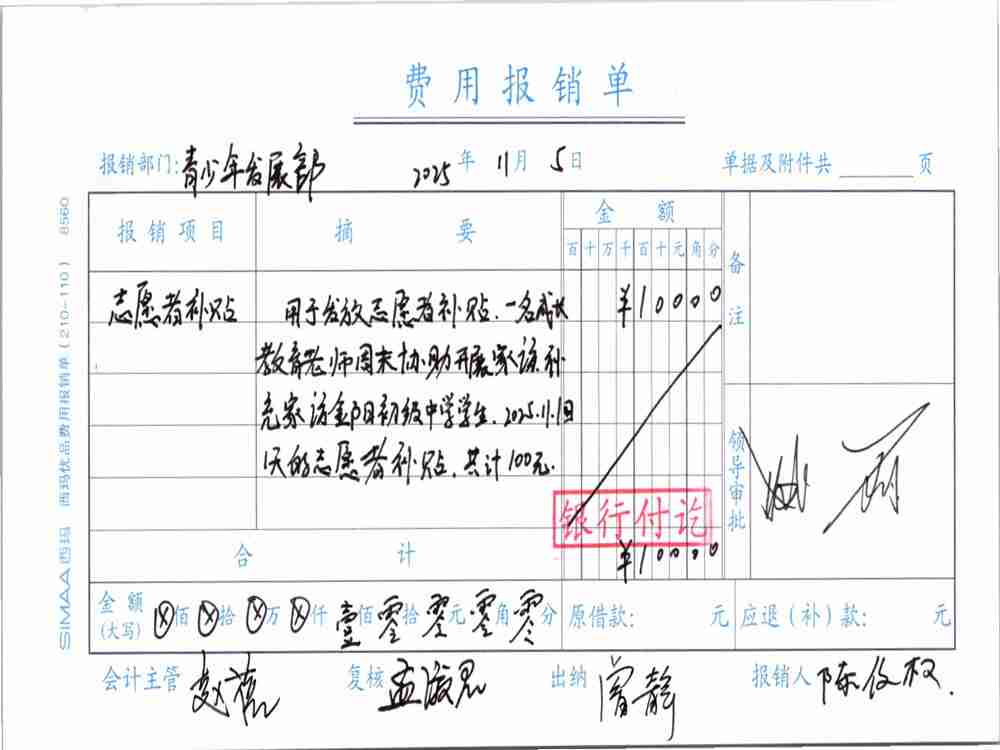 费用报销单
报销部门:青少年发展部 2025年11月5日 单据及附件共 页
报销项目 摘要 金额 备注
百十万千百十元角分
志愿者补贴 用于发放志愿者补贴.一名成长 ¥10000
教育老师周末协助开展家访.补
充家访金阳初级中学学生.2025.11.1日
1天的志愿者补贴.共计100元.
领导审批
银行付讫
合计 ¥10000
金额(大写) ⊗佰⊗拾⊗万⊗仟壹佰零拾零元零角零分 原借款: 元 应退(补)款: 元
会计主管 赵 复核 孟 出纳 曾静 报销人 陈俊权.
SIMAA西玛 西玛优品费用报销单(210-110) 8560